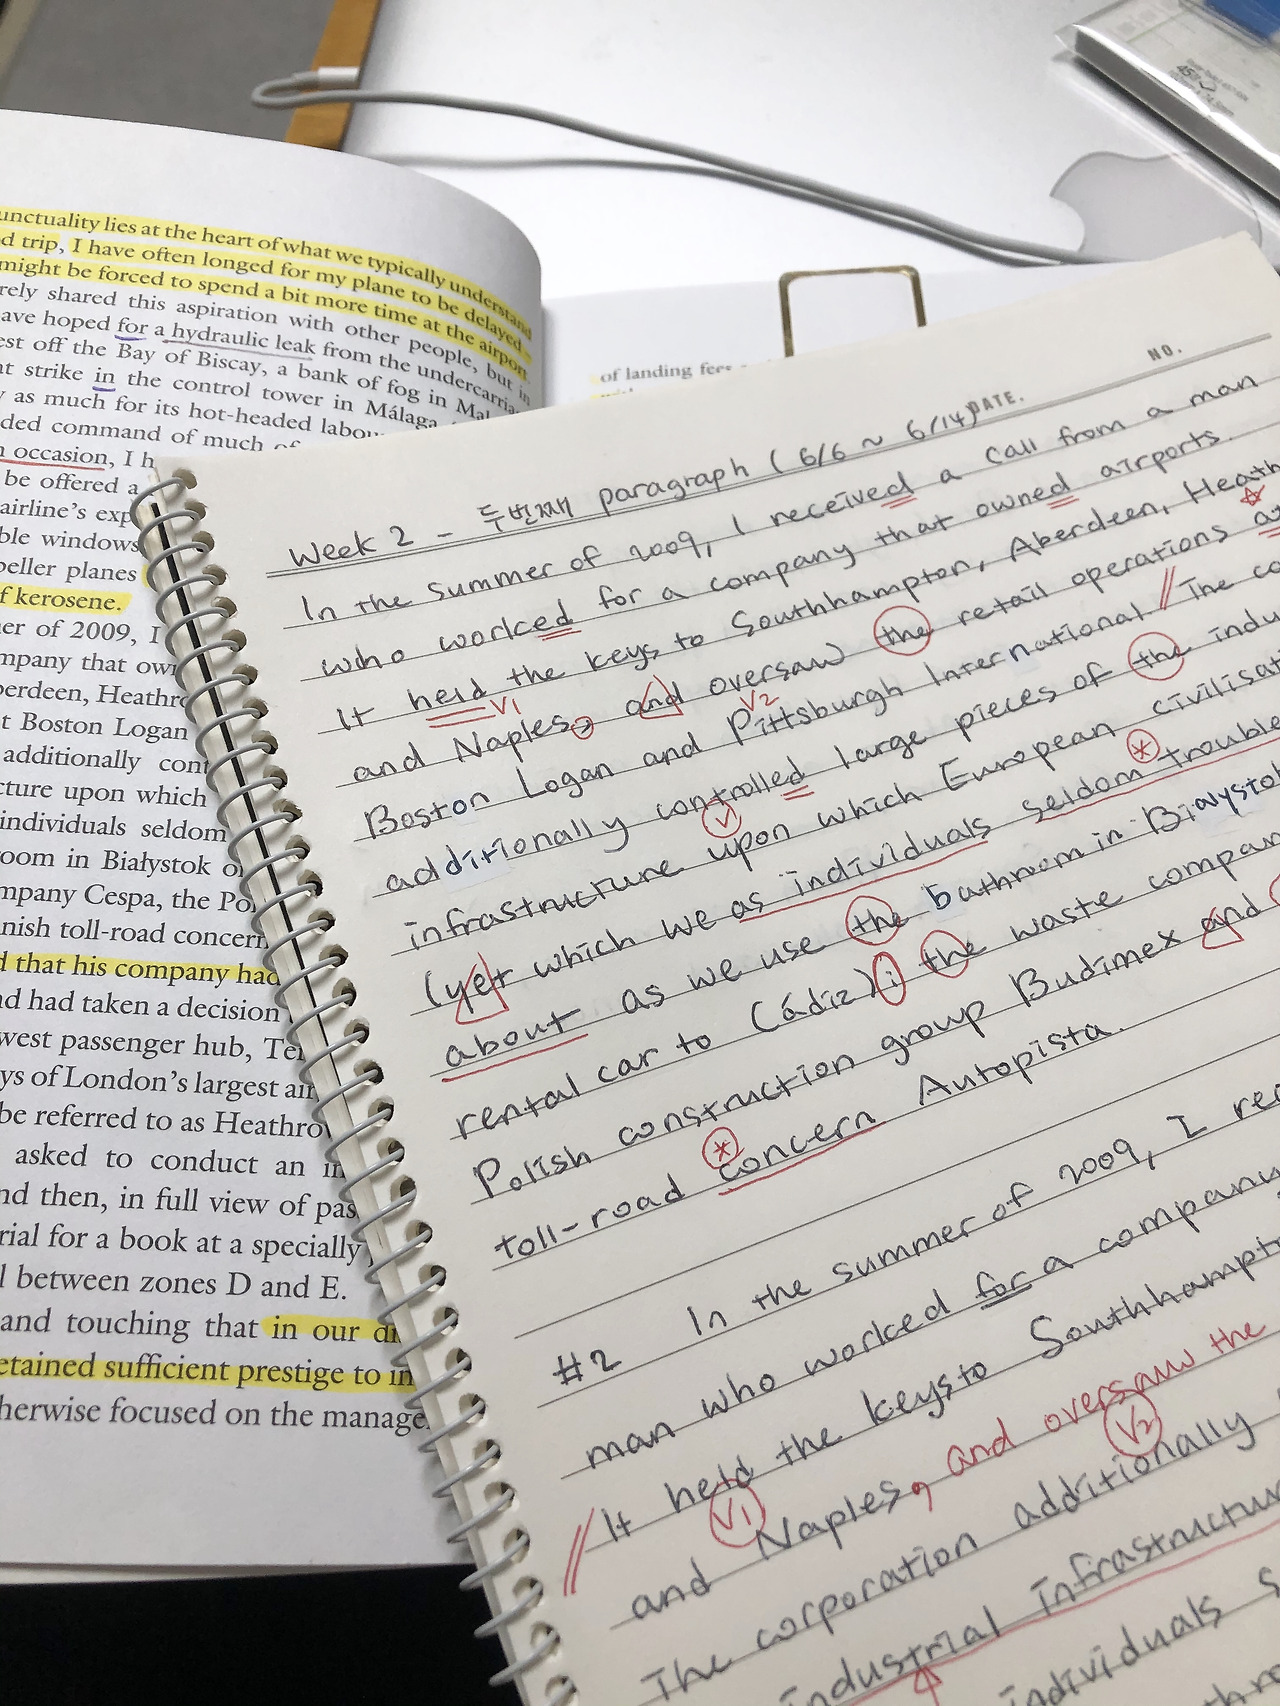 unctuality lies at the heart of what we typically understand
d trip, I have often longed for my plane to be delayed –
might be forced to spend a bit more time at the airport.
rely shared this aspiration with other people, but in
ave hoped for a hydraulic leak from the undercarria
est off the Bay of Biscay, a bank of fog in Mal
nt strike in the control tower in Málaga
y as much for its hot-headed labou
ded command of much of
n occasion, I h
be offered a
airline's exp
ble windows
peller planes
f kerosene.
er of 2009, I
mpany that own
berdeen, Heathro
t Boston Logan
additionally cont
cture upon which
individuals seldom
room in Białystok o
mpany Cespa, the Po
nish toll-road concern
d that his company had
nd had taken a decision
west passenger hub, Ter
ys of London's largest air
be referred to as Heathro
asked to conduct an in
nd then, in full view of pas
rial for a book at a specially
l between zones D and E.
and touching that in our di
etained sufficient prestige to in
herwise focused on the manage
of landing fees
NO.
DATE.
Week 2 - 두번째 paragraph (6/6 ~ 6/14)
In the summer of 2009, I received a call from a man
who worked for a company that owned airports.
It held the keys to Southhampton, Aberdeen, Heath
V1
and Naples, and oversaw the retail operations at
V2
Boston Logan and Pittsburgh International // The co
additionally controlled large pieces of the indu
V
infrastructure upon which European civilisati
(yet which we as individuals seldom trouble
about as we use the bathroom in Bialystok
rental car to Cádiz); the waste compan
Polish construction group Budimex and
toll-road concern Autopista.
#2 In the summer of 2009, I rec
man who worked for a company
// It held the keys to Southhampt
V1
and Naples, and oversaw the
V2
The corporation additionally
industrial infrastructu
individuals s